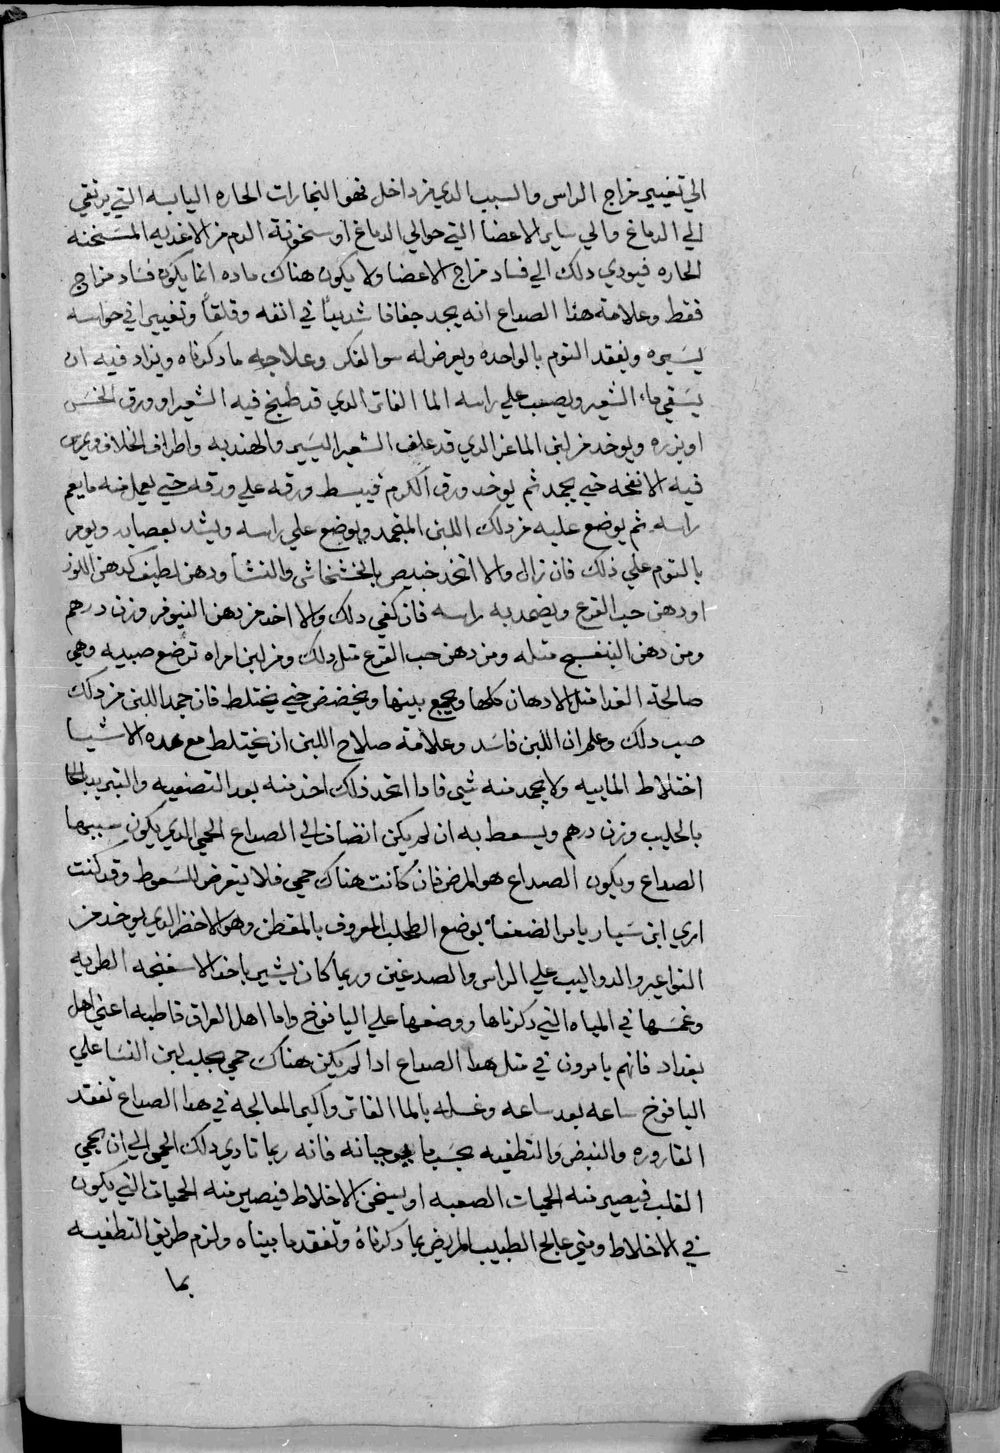 الي تغيير مزاج الراس والسبب الدي من داخل فهو البخارات الحاره اليابسه التي يرتقي
الي الدماغ والي ساير الاعضا التي حوالي الدماغ او سخونة الدم من الاغديه المسخنه
الحاره فيودي دلك الي فساد مزاج الاعضا ولا يكون هناك ماده انما يكون فساد مزاج
فقط وعلامة هدا الصداع انه يجد جفافا شديدًا في انفه وقلقًا وتغييرا في حواسه
يسيره ويفقد النوم بالواحده ويعرض له سو الفكر وعلاجه ما دكرناه ويزاد فيه ان
يسقي ماء الشعير ويصب علي راسه الما الفاتر الدي قد طبخ فيه الشعير او ورق الخس
او بزره ويوخد من لبن الماعز الدي قد علف الشعير اليسير والهندبه واطراف الخلاف ويمرس
فيه الانفحه حتي يجمد ثم يوخد ورق الكرم فيبسط ورقه علي ورقه حتي يعمل منه ما يعم
راسه ثم يوضع عليه من دلك اللبن المتجمد ويوضع علي راسه ويشد بعصابه ويومر
بالنوم علي ذلك فان زال والا اتخد خبيص بالخشخاش والنشا ودهن لطيف كدهن اللوز
او دهن حب القرع ويضمد به راسه فان كفي دلك والا اخد من دهن النيلوفر وزن درهم
ومن دهن البنفسج مثله ومن دهن حب القرع مثل دلك ومن لبن امراه ترضع صبيه وهي
صالحة الغدا مثل الادهان كلها ويجمع بينها ويخضخض حتي يختلط فان جمد اللبن من دلك
صب دلك وعلم ان اللبن فاسد وعلامة صلاح اللبن ان يختلط مع هده الاشيا
اختلاط المابيه ولا يجمد منه شي فادا اتخد ذلك اخذ منه بعد التصفيه والتبريد
بالحليب وزن درهم ويسعط به ان لم يكن انضاف الي الصداع الحمي الدي يكون سببها
الصداع ويكون الصداع هو المرض فان كانت هناك حمي فلا يتعرض للسعوط وقد كنت
اري ابن سيار يامر الضعفا بوضع الطحلب المعروف بالمقطن وهو الاخضر الدي يوخد من
النواعير والدواليب علي الراس والصدغين وربما كان يشير باخد الاسفنجه الطريه
وغمسها في المياه التي دكرناها ووضعها علي اليافوخ واما اهل العراق قاطبه اعني اهل
بغداد فانهم يامرون في مثل هدا الصداع ادا لم يكن هناك حمي بحلب لبن النسا علي
اليافوخ ساعه بعد ساعه وغسله بالما الفاتر واكبر المعالجه في هدا الصداع تفقد
القاروره والنبض والتطفيه بحسب ما يوجبانه فانه ربما تادي دلك الحمي الي ان يحمي
القلب فيصير منه الحميات الصعبه او يسخن الاخلاط فيصير منه الحميات التي تكون
في الاخلاط ومتي عالج الطبيب المريض بما دكرناه وتفقد ما بيناه ولزم طريق التطفيه
بما